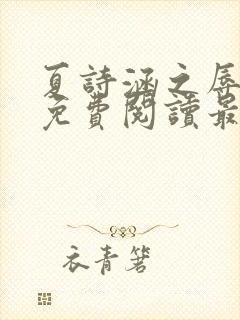 夏詩涵之辱
免費閱讀最
衣青箬